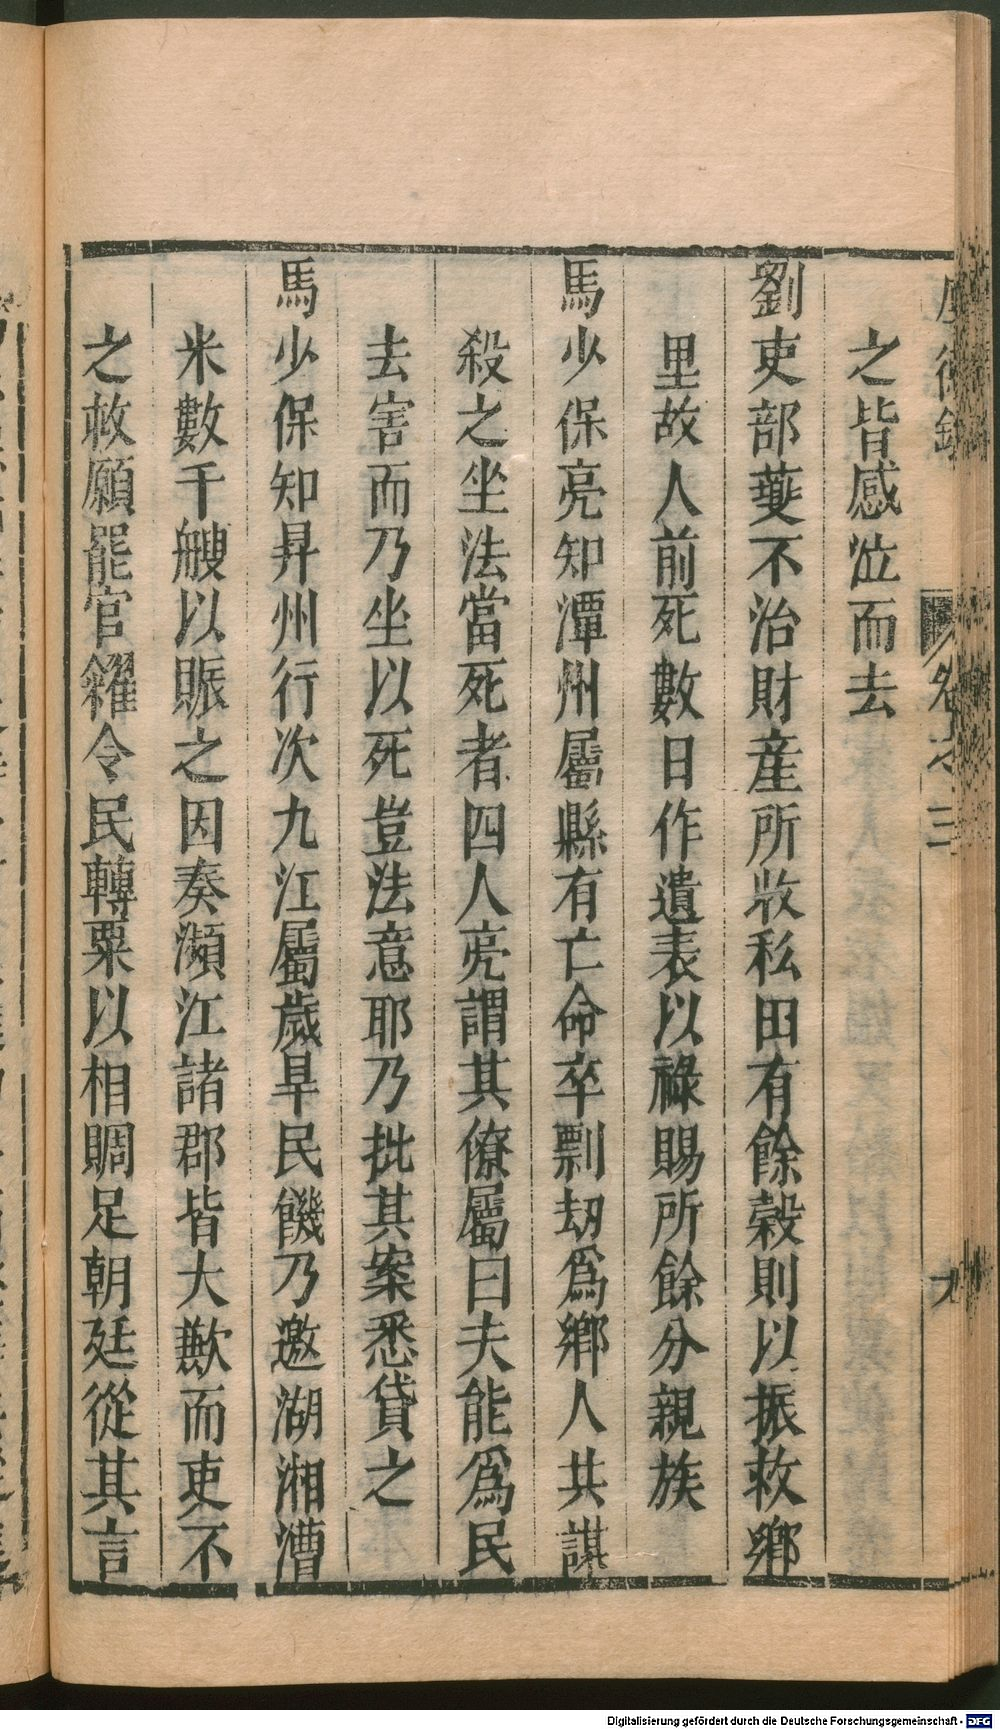 厚德錄 卷之三 九
之皆感泣而去
劉吏部夔不治財産所收私田有餘榖則以振救鄉
里故人前死數日作遺表以祿賜所餘分親族
馬少保亮知潭州屬縣有亡命卒剽刼爲鄉人共謀
殺之坐法當死者四人亮謂其僚屬曰夫能爲民
去害而乃坐以死豈法意耶乃批其案悉貸之
馬少保知昇州行次九江屬歲旱民饑乃邀湖湘漕
米數千艘以賑之因奏瀕江諸郡皆大歉而吏不
之救願罷官糴令民轉粟以相賙足朝廷從其言
Digitalisierung gefördert durch die Deutsche Forschungsgemeinschaft - DFG